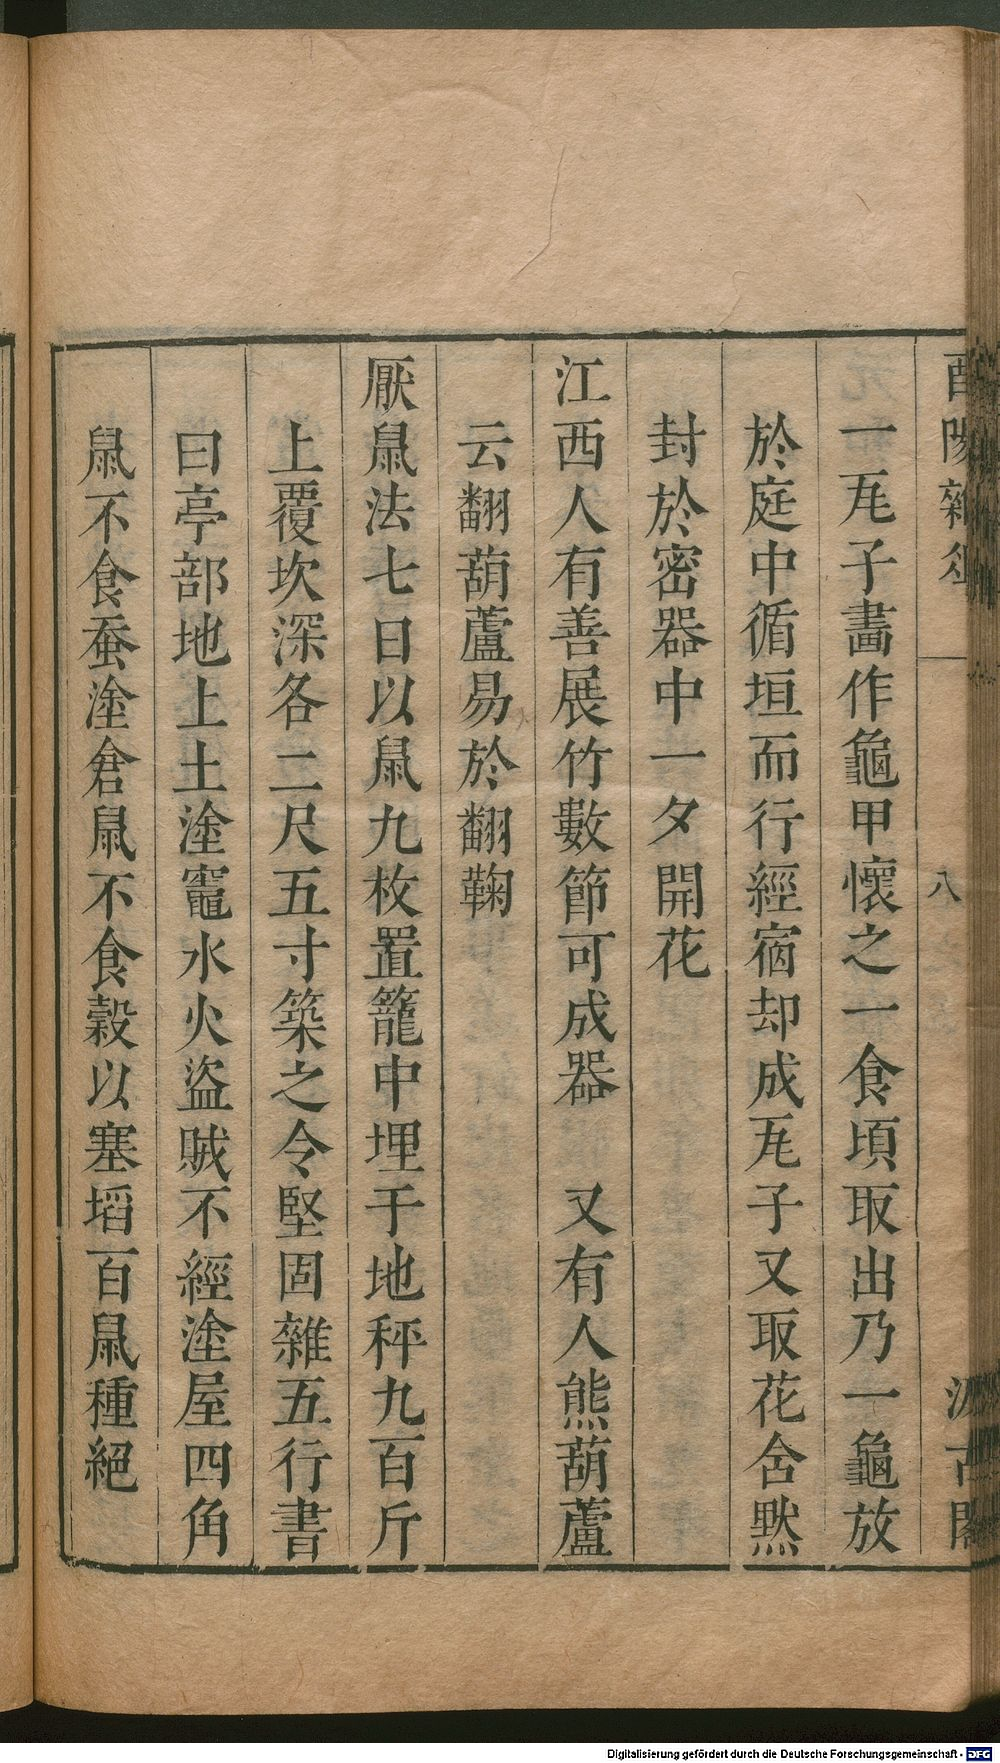 酉陽雜俎
八
汲古閣
一瓦子畵作龜甲懷之一食頃取出乃一龜放
於庭中循垣而行經宿却成瓦子又取花含黙
封於密器中一夕開花
江西人有善展竹數節可成器　又有人熊葫蘆
云翻葫蘆易於翻鞠
厭鼠法七日以鼠九枚置籠中埋于地秤九百斤
上覆坎深各二尺五寸築之令堅固雜五行書
曰亭部地上土塗竈水火盜賊不經塗屋四角
鼠不食蚕塗倉鼠不食穀以塞埳百鼠種絕
Digitalisierung gefördert durch die Deutsche Forschungsgemeinschaft - DFG